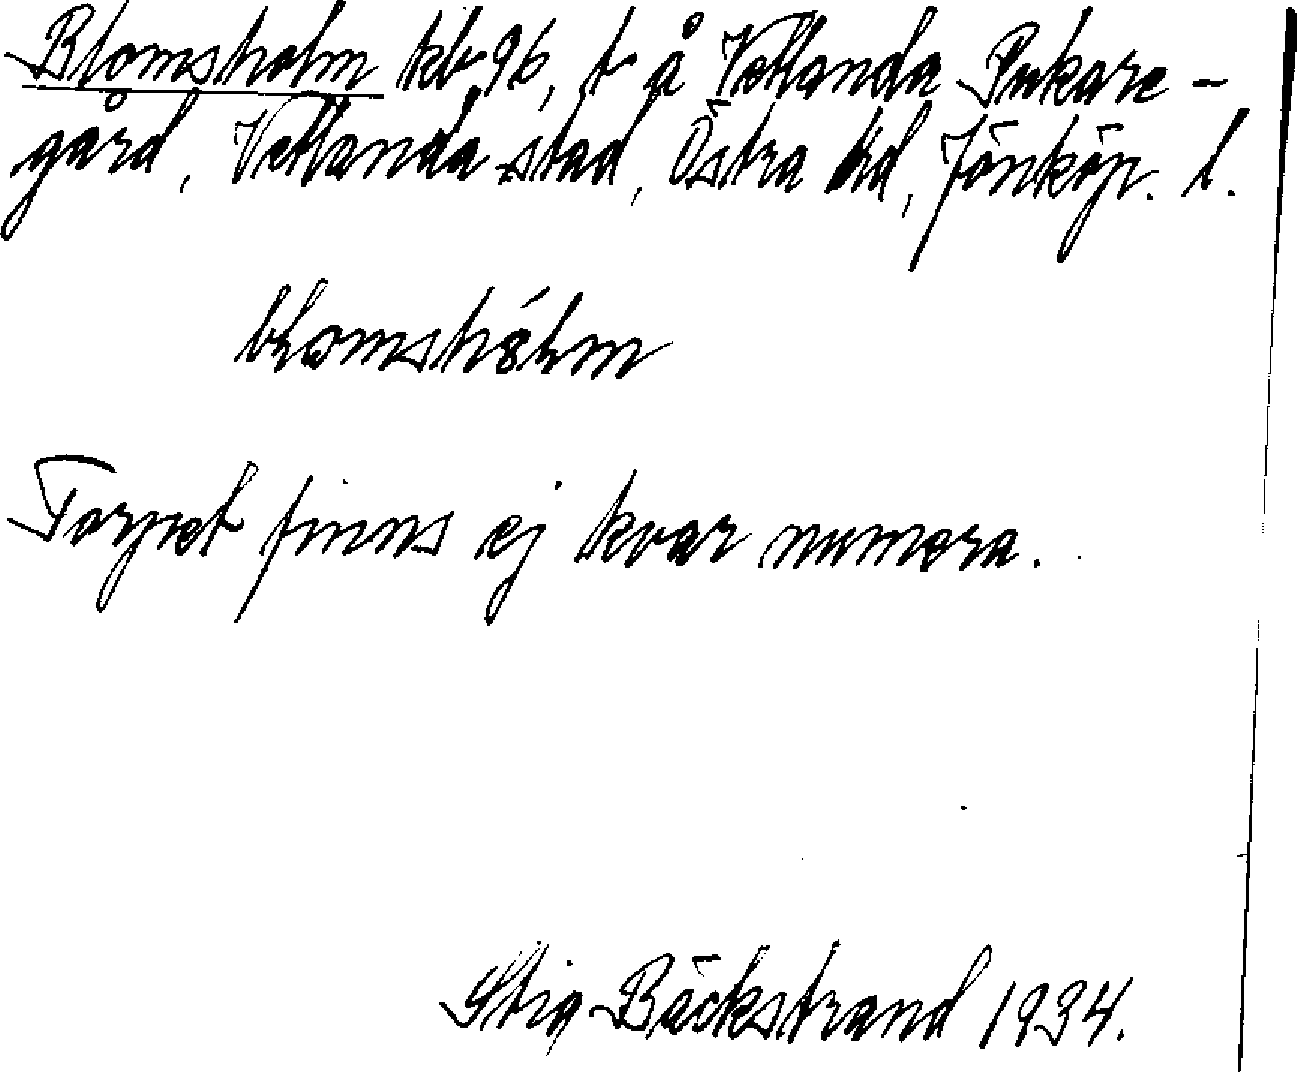 Blomsholm kb 96, t å Vetlanda Pukare-
gård, Vetlanda stad, Östra hd, Jönköp. l.
blomshólm
Torpet finns ej kvar numera.
Stig Bäckstrand 1934.